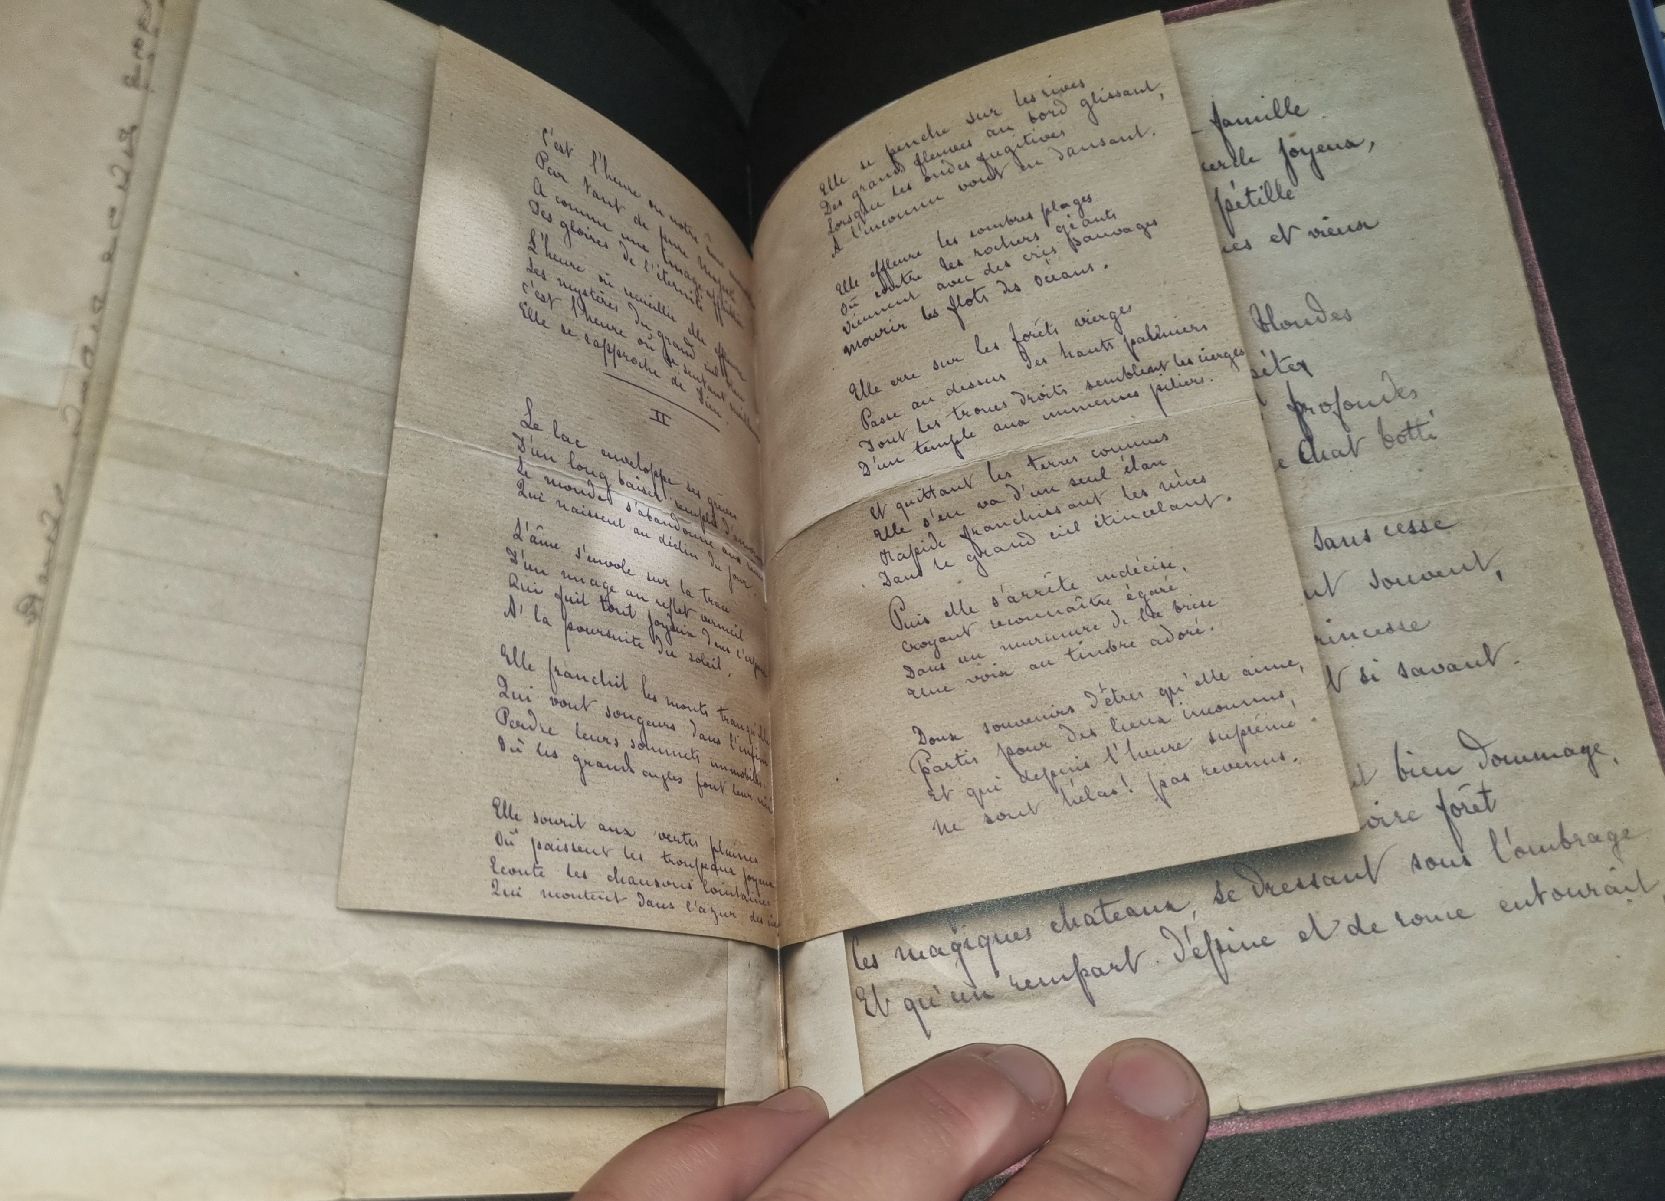 C'est l'heure où notre âme
Par tant de
A comme une image
Des gloires de l'éternité
L'heure où recueillie elle
Les mystères du grand
C'est l'heure où se
Elle se rapproche de Dieu
II
Le lac enveloppe ses grèves
D'un long baiser rempli d'amour
Le monde s'abandonne aux rêves
Qui naissent au déclin du jour.
L'âme s'envole sur la trace
D'un nuage au reflet vermeil
Qui fuit tout joyeux dans l'espace
A la poursuite du soleil.
Elle franchit les monts tranquilles
Qui vont songeurs dans l'infini
Perdre leurs sommets immobiles
Où les grands aigles font leur nid
Elle sourit aux vertes plaines
Où paissent les troupeaux joyeux
Ecoute les chansons lointaines
Qui montent dans l'azur des
Elle se penche sur les rives
Des grands fleuves au bord glissant,
Lorsque les ondes fugitives
A l'inconnu vont en dansant.
Elle effleure les sombres plages
Où contre les rochers géants
Viennent avec des cris sauvages
Mourir les flots des océans.
Elle erre sur les forêts vierges
Passe au dessus des hauts palmiers
Dont les troncs droits semblent les cierges
D'un temple aux immenses piliers.
Et quittant les terres connues
Elle s'en va d'un seul élan
Rapide franchissant les nues
Dans le grand ciel étincelant.
Puis elle s'arrête indécise,
Croyant reconnaître égaré
Dans un murmure de la brise
Une voix au timbre adoré.
Doux souvenirs d'êtres qu'elle aime,
Partis pour des lieux inconnus,
Et qui depuis l'heure suprême
Ne sont hélas! pas revenus.
famille
cercle joyeux,
pétille
et vieux
blondes
profondes
chat botté
sans cesse
souvent,
princesse
si savant.
bien dommage,
forêt
les magiques chateaux, se dressant sous l'ombrage
Et qu'un rempart d'épine et de ronce entourait